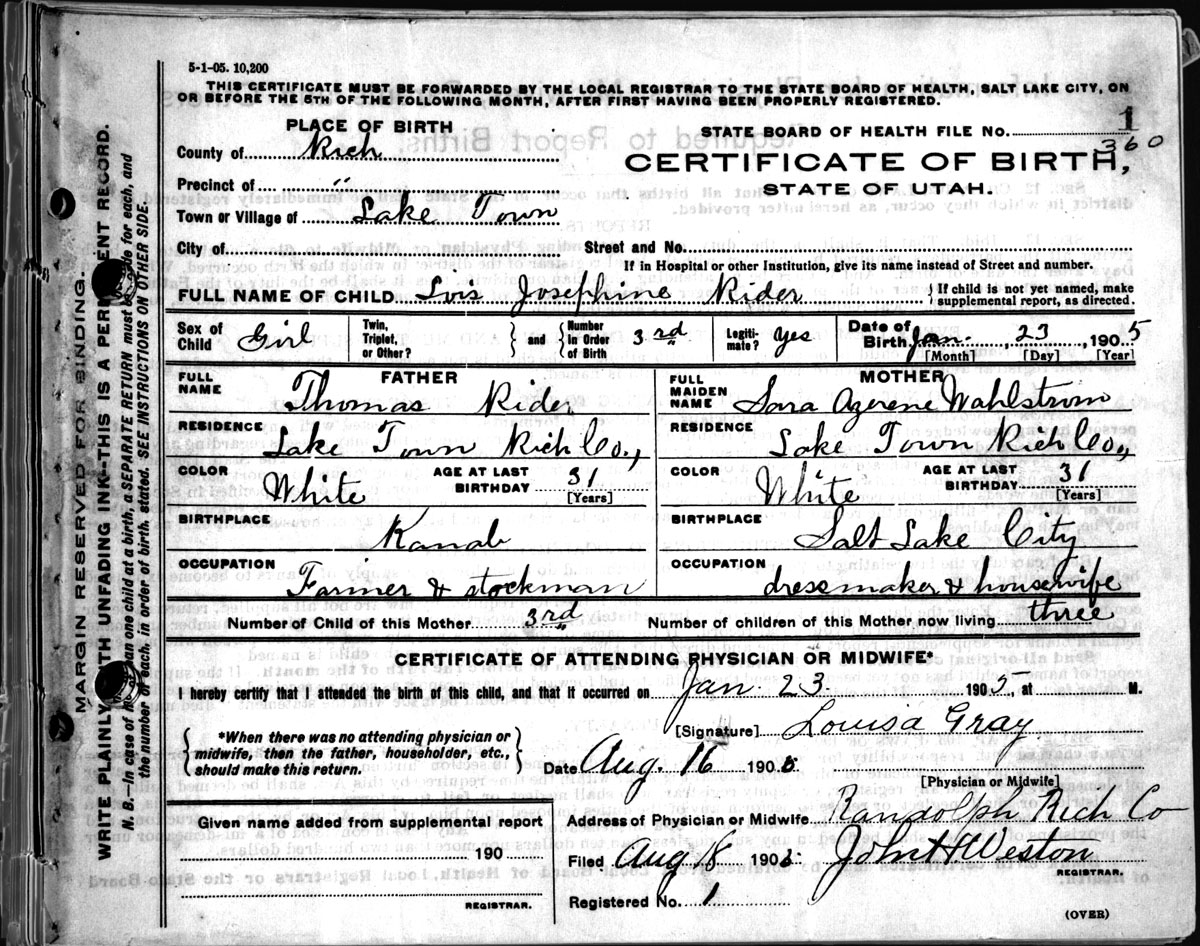 5-1-05. 10,200
THIS CERTIFICATE MUST BE FORWARDED BY THE LOCAL REGISTRAR TO THE STATE BOARD OF HEALTH, SALT LAKE CITY, ON
OR BEFORE THE 5TH OF THE FOLLOWING MONTH, AFTER FIRST HAVING BEEN PROPERLY REGISTERED.
PLACE OF BIRTH
County of Rich
Precinct of "
Town or Village of Lake Town
City of
STATE BOARD OF HEALTH FILE No. 1
360
CERTIFICATE OF BIRTH,
STATE OF UTAH.
Street and No.
If in Hospital or other Institution, give its name instead of Street and number.
FULL NAME OF CHILD Lois Josephine Rider
If child is not yet named, make
supplemental report, as directed.
Sex of Child Girl
Twin, Triplet, or Other?
and Number in Order of Birth 3rd
Legiti-mate? yes
Date of Birth Jan. 23, 1905
[Month] [Day] [Year]
FATHER
FULL NAME Thomas Rider
RESIDENCE Lake Town Rich Co.,
COLOR White
AGE AT LAST BIRTHDAY 31
[Years]
BIRTHPLACE Kanab
OCCUPATION Farmer & stockman
MOTHER
FULL MAIDEN NAME Sara Azerene Wahlstrom
RESIDENCE Lake Town Rich Co.,
COLOR White
AGE AT LAST BIRTHDAY 31
[Years]
BIRTHPLACE Salt Lake City
OCCUPATION dressmaker & housewife
Number of Child of this Mother 3rd
Number of children of this Mother now living three
CERTIFICATE OF ATTENDING PHYSICIAN OR MIDWIFE*
I hereby certify that I attended the birth of this child, and that it occurred on Jan. 23. 1905 at M.
*When there was no attending physician or
midwife, then the father, householder, etc.,
should make this return.
[Signature] Louisa Gray.
Date Aug 16 1905
[Physician or Midwife]
Given name added from supplemental report
190
REGISTRAR.
Address of Physician or Midwife Randolph Rich Co
Filed Aug 18 1905 John H Weston
REGISTRAR.
Registered No. 1
(OVER)
MARGIN RESERVED FOR BINDING.
WRITE PLAINLY WITH UNFADING INK—THIS IS A PERMANENT RECORD.
N. B.—In case of more than one child at a birth, a SEPARATE RETURN must be made for each, and
the number of each, in order of birth, stated. SEE INSTRUCTIONS ON OTHER SIDE.